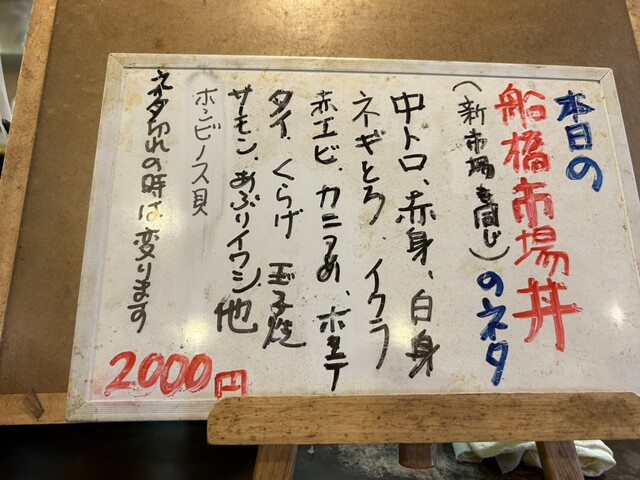 本日の
船橋市場丼
(新市場も同じ)のネタ
中トロ、赤身、白身
ネギとろ イクラ
赤エビ、カニつめ、ホタテ
タイ、くらげ 玉子焼
サーモン、あぶりイワシ、他
ホンビノス貝
ネタ切れの時は変ります
2000円